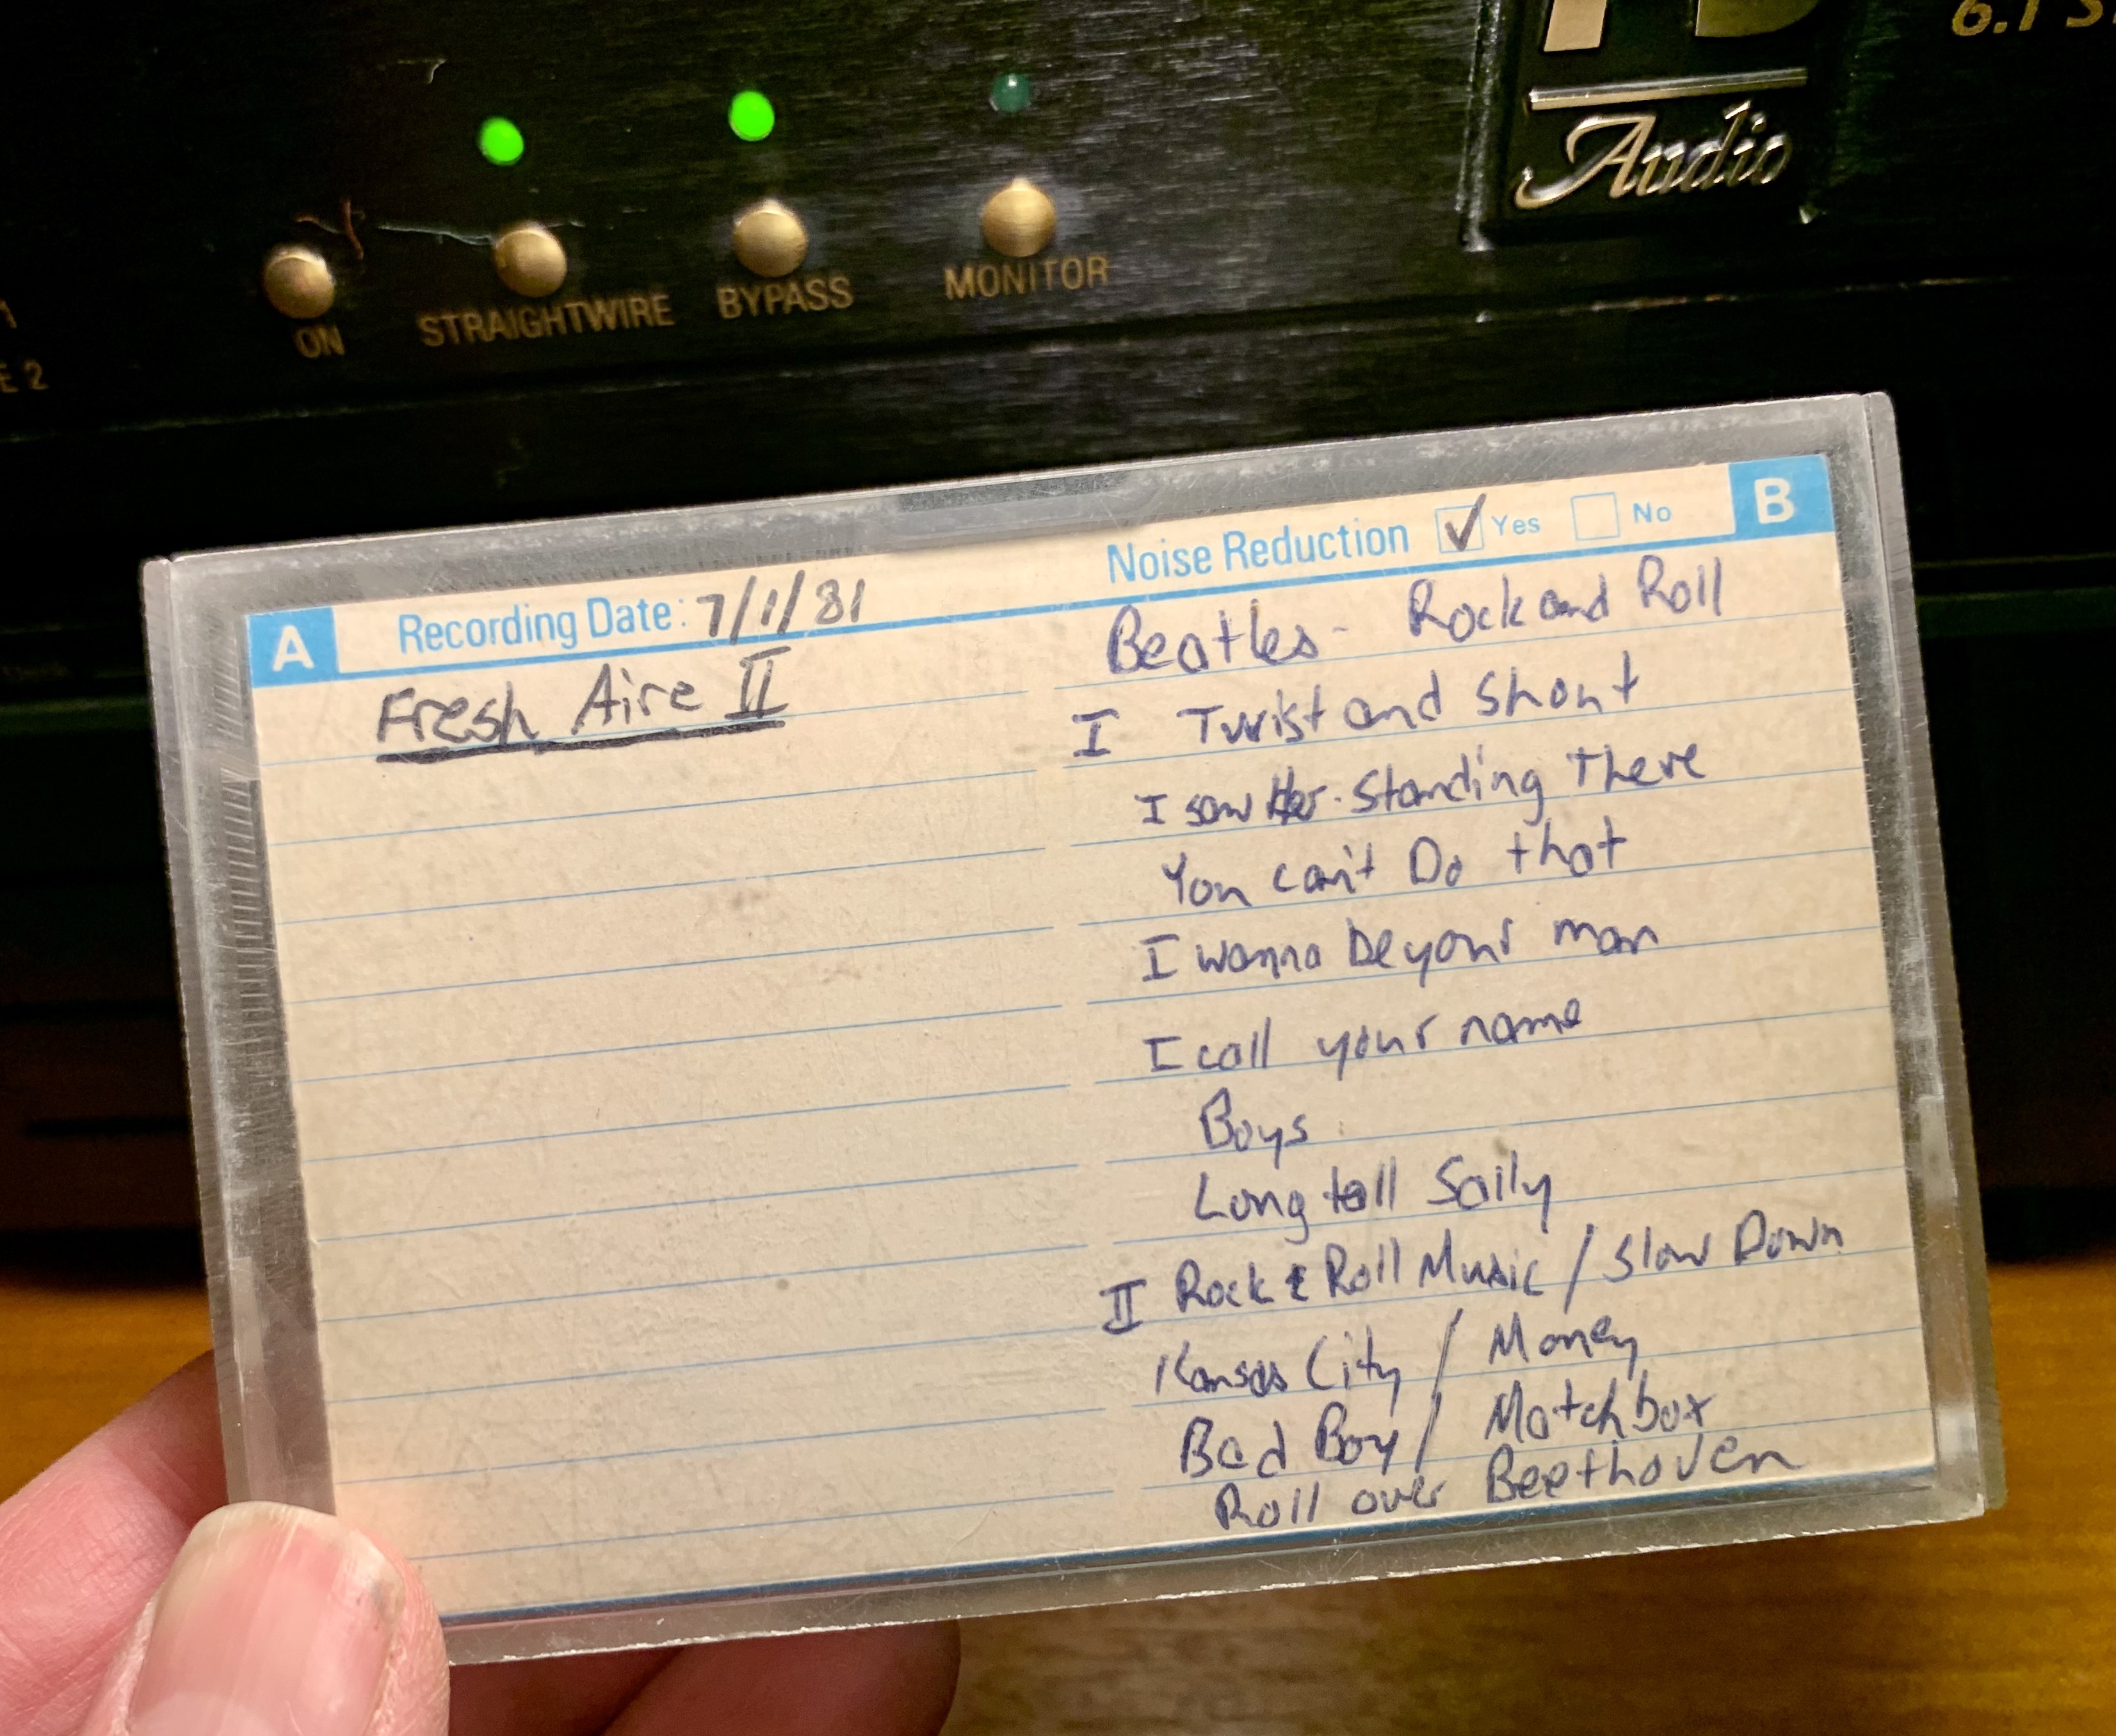 6.1
Audio
ON
STRAIGHTWIRE
BYPASS
MONITOR
1
E 2
A
Recording Date: 7/1/81
Noise Reduction ✓ Yes No
B
Fresh Aire II
Beatles - Rock and Roll
I Twist and Shout
I saw Her Standing There
You can't Do that
I wanna be your man
I call your name
Boys
Long tall Sally
II Rock & Roll Music / Slow Down
Kansas City / Money
Bad Boy / Matchbox
Roll over Beethoven